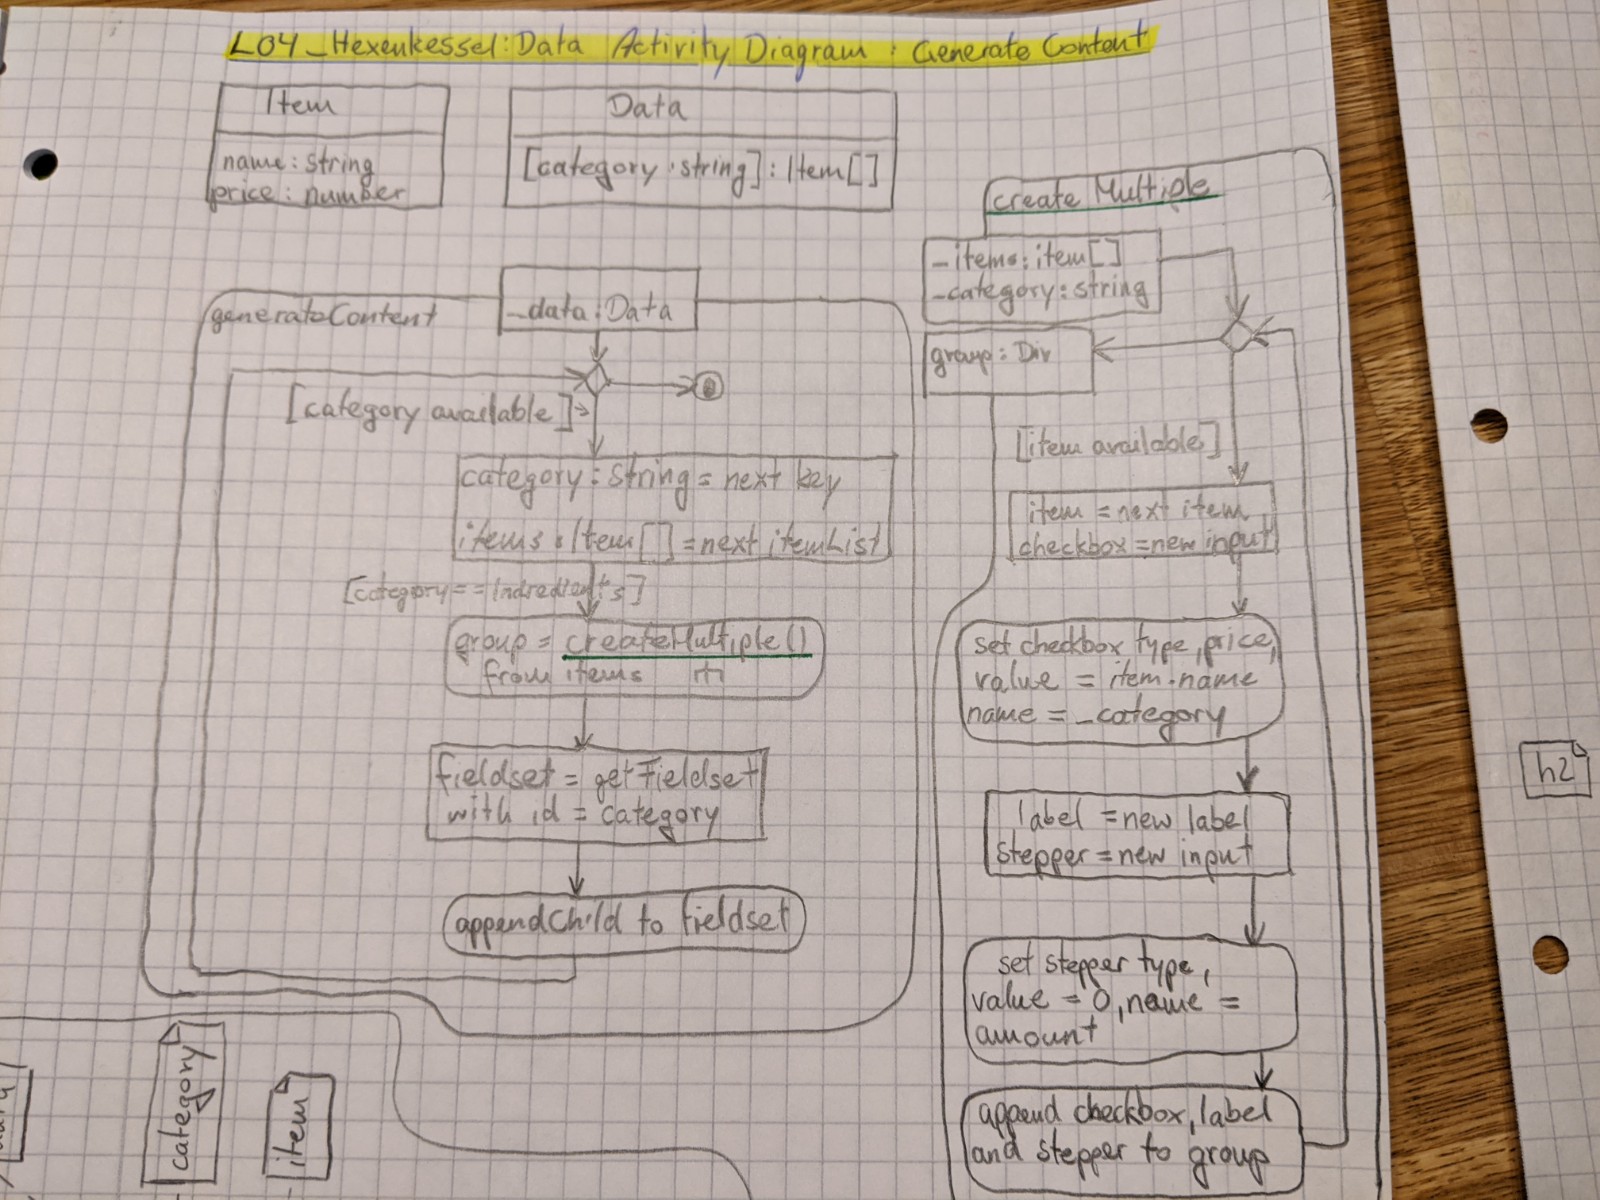 L04_Hexenkessel: Data Activity Diagram: Generate Content
Item
name: string
price: number
Data
[category: string]: Item[]
generateContent
_data: Data
[category available]
category: string = next key
items: Item[] = next itemList
[category == Indredients]
group = createMultiple()
from items
fieldset = getFieldset
with id = category
appendChild to fieldset
create Multiple
_items: item[]
_category: string
group: Div
[item available]
item = next item
checkbox = new input
set checkbox type, price,
value = item.name
name = _category
label = new label
stepper = new input
set stepper type,
value = 0, name =
amount
append checkbox, label
and stepper to group
category
item
h2